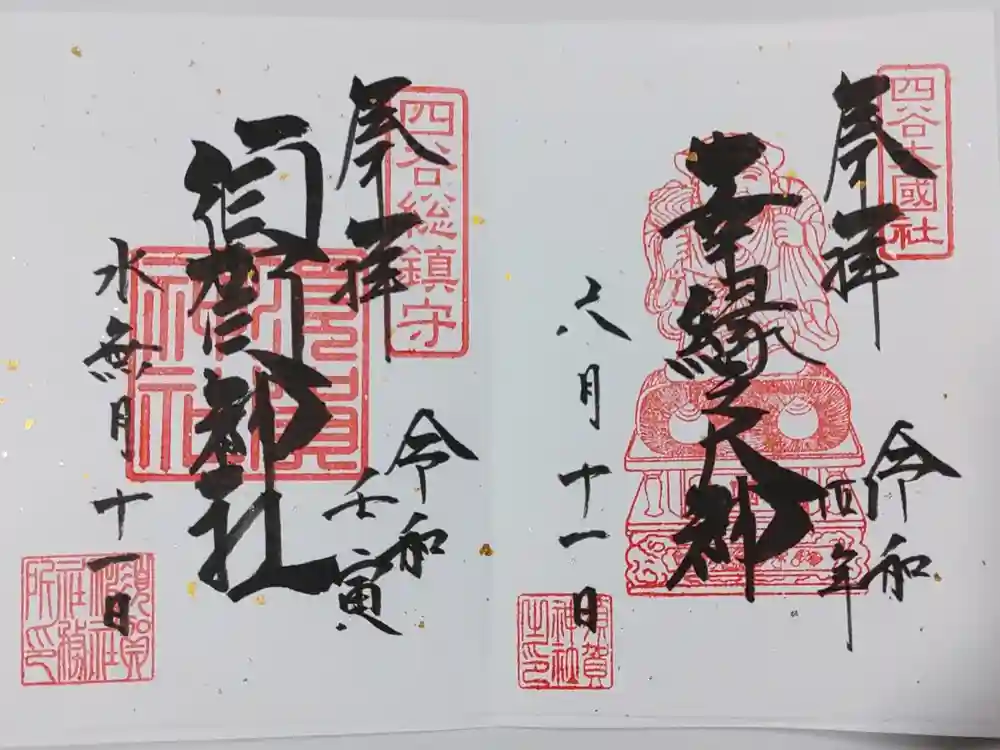 四谷大國社
奉拝
令和
四年
幸縁之大神
六月十一日
須賀
神社
之印
四谷総鎮守
奉拝
令和
壬寅
須賀神社
須賀
神社
水無月十一日
須賀
神社
社務
所印